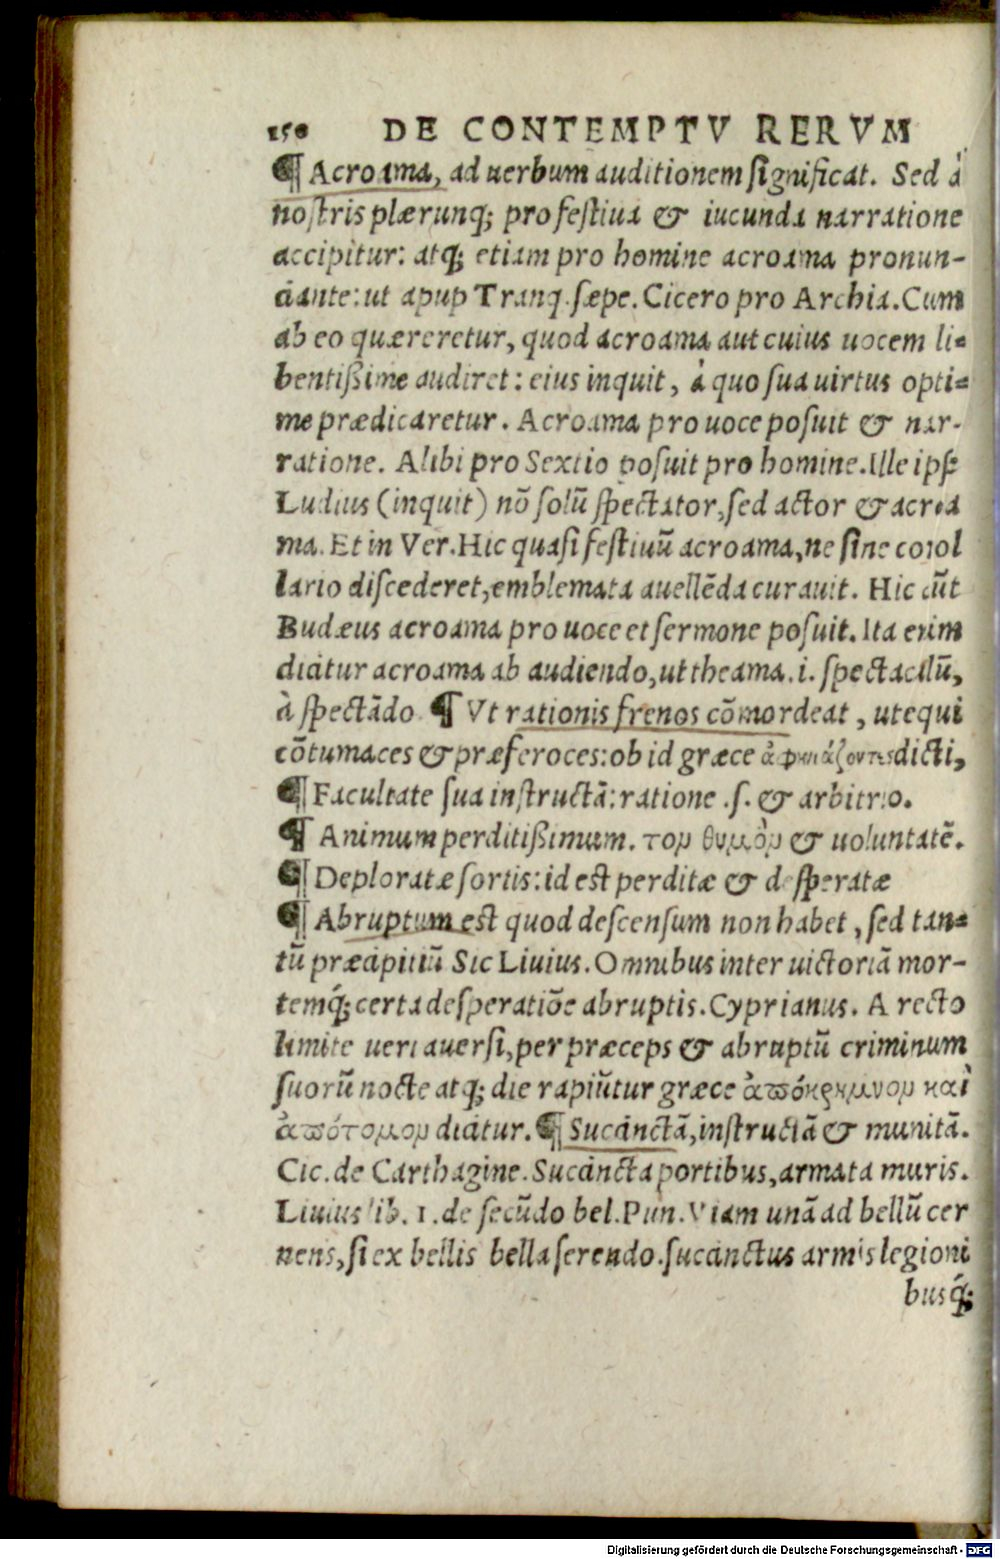 150 DE CONTEMPTV RERVM
¶ Acroama, ad uerbum auditionem significat. Sed à
nostris plærunq; pro festiua & iucunda narratione
accipitur: atq; etiam pro homine acroama pronun-
ciante: ut apup Tranq. sæpe. Cicero pro Archia. Cum
ab eo quæreretur, quod acroama aut cuius uocem li-
bentißime audiret: eius inquit, à quo sua uirtus opti-
me prædicaretur. Acroama pro uoce posuit & nar-
ratione. Alibi pro Sextio posuit pro homine. Ille ipse
Ludius (inquit) nõ solũ spectator, sed actor & acroa
ma. Et in Ver. Hic quasi festiuũ acroama, ne sine corol
lario discederet, emblemata auellẽda curauit. Hic
Budæus acroama pro uoce et sermone posuit. Ita enim
dicitur acroama ab audiendo, ut theama .i. spectaculũ,
à spectãdo ¶ Vt rationis frenos cõmordeat, ut equi
cõtumaces & præferoces: ob id græce dicti,
¶ Facultate sua instructã: ratione .s. & arbitrio.
¶ Animum perditißimum. τομ θυμὸμ & uoluntatẽ.
¶ Deploratæ sortis: id est perditæ & desperatæ
¶ Abruptum est quod descensum non habet, sed tan-
tũ præcipitiũ Sic Liuius. Omnibus inter uictoriã mor-
temq́; certa desperatiõe abruptis. Cyprianus. A recto
limite ueri auersi, per præceps & abruptũ criminum
suorũ nocte atq; die rapiũtur græce ἀπόκρημνομ καὶ
ἀπότομομ dicitur. ¶ Succinctã, instructã & munitã.
Cic. de Carthagine. Succincta portibus, armata muris.
Liuius lib. 1. de secũdo bel. Pun. Viam unã ad bellũ cer
nens, si ex bellis bella serendo. succinctus armis legioni
busq́;
Digitalisierung gefördert durch die Deutsche Forschungsgemeinschaft - DFG